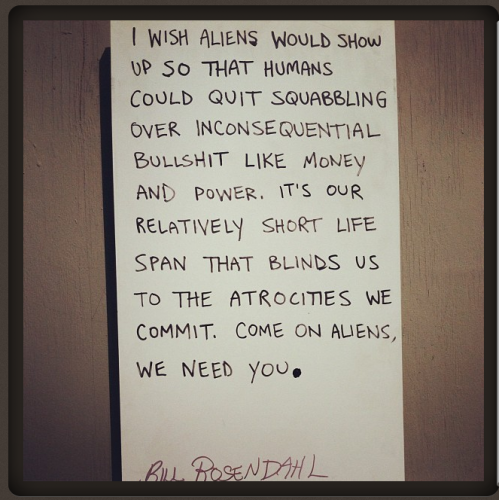 I WISH ALIENS WOULD SHOW
UP SO THAT HUMANS
COULD QUIT SQUABBLING
OVER INCONSEQUENTIAL
BULLSHIT LIKE MONEY
AND POWER. IT'S OUR
RELATIVELY SHORT LIFE
SPAN THAT BLINDS US
TO THE ATROCITIES WE
COMMIT. COME ON ALIENS,
WE NEED YOU.
BILL ROSENDAHL